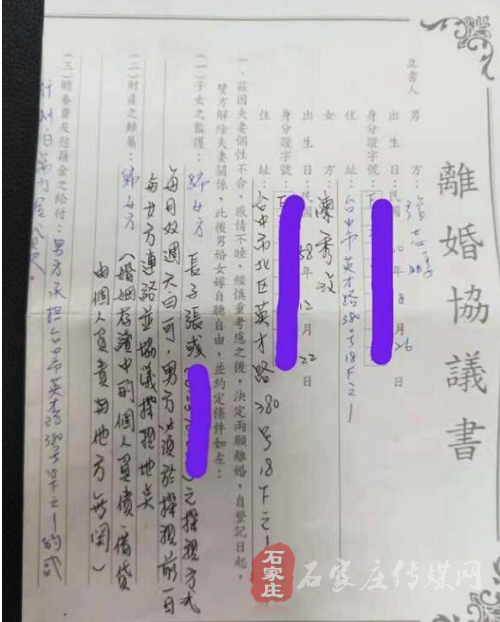 離婚協議書
立書人 男 方：張志
出生日：民國 年 8 月 26 日
身分證字號：
住 址：台中市英才路380号18F之1
女 方：陳秀
出生日：民國58年12月22日
身分證字號：
住 址：台中市北区英才路380号18F之1
一、茲因夫妻個性不合，感情不睦，經慎重考慮之後，決定兩願離婚，自登記日起，
雙方解除夫妻關係，此後男婚女嫁自聽自由，並約定條件如左：
(一)子女之監護：歸女方 長子張 之探視方式
每月双週天白可，男方必須於探視前一日
与女方連絡並協議探視地点
(二)財產之歸屬：歸女方（婚姻存續中的個人負債、借貸
由個人負責与他方無関）
(三)贍養費及慰藉金之給付：男方承担台中市英才路380号18F之1的
石家庄
石家庄传媒网